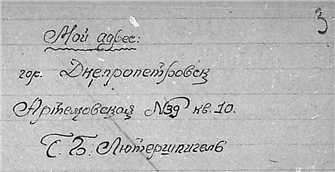 3
Мой адрес:
гор. Днепропетровск
Артемовская №39 кв. 10.
Г. Б. Лютершпигель